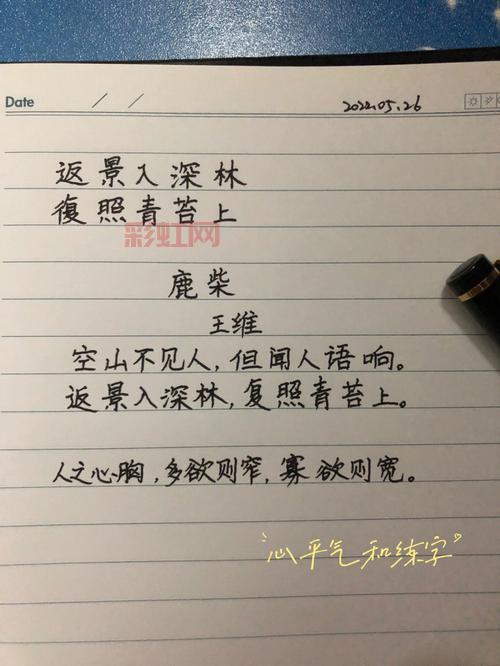 Date / / 2022.05.26
返景入深林
復照青苔上
彩虹网
鹿柴
王维
空山不见人,但闻人语响。
返景入深林,复照青苔上。
人之心胸,多欲则窄,寡欲则宽。
“心平气和练字”